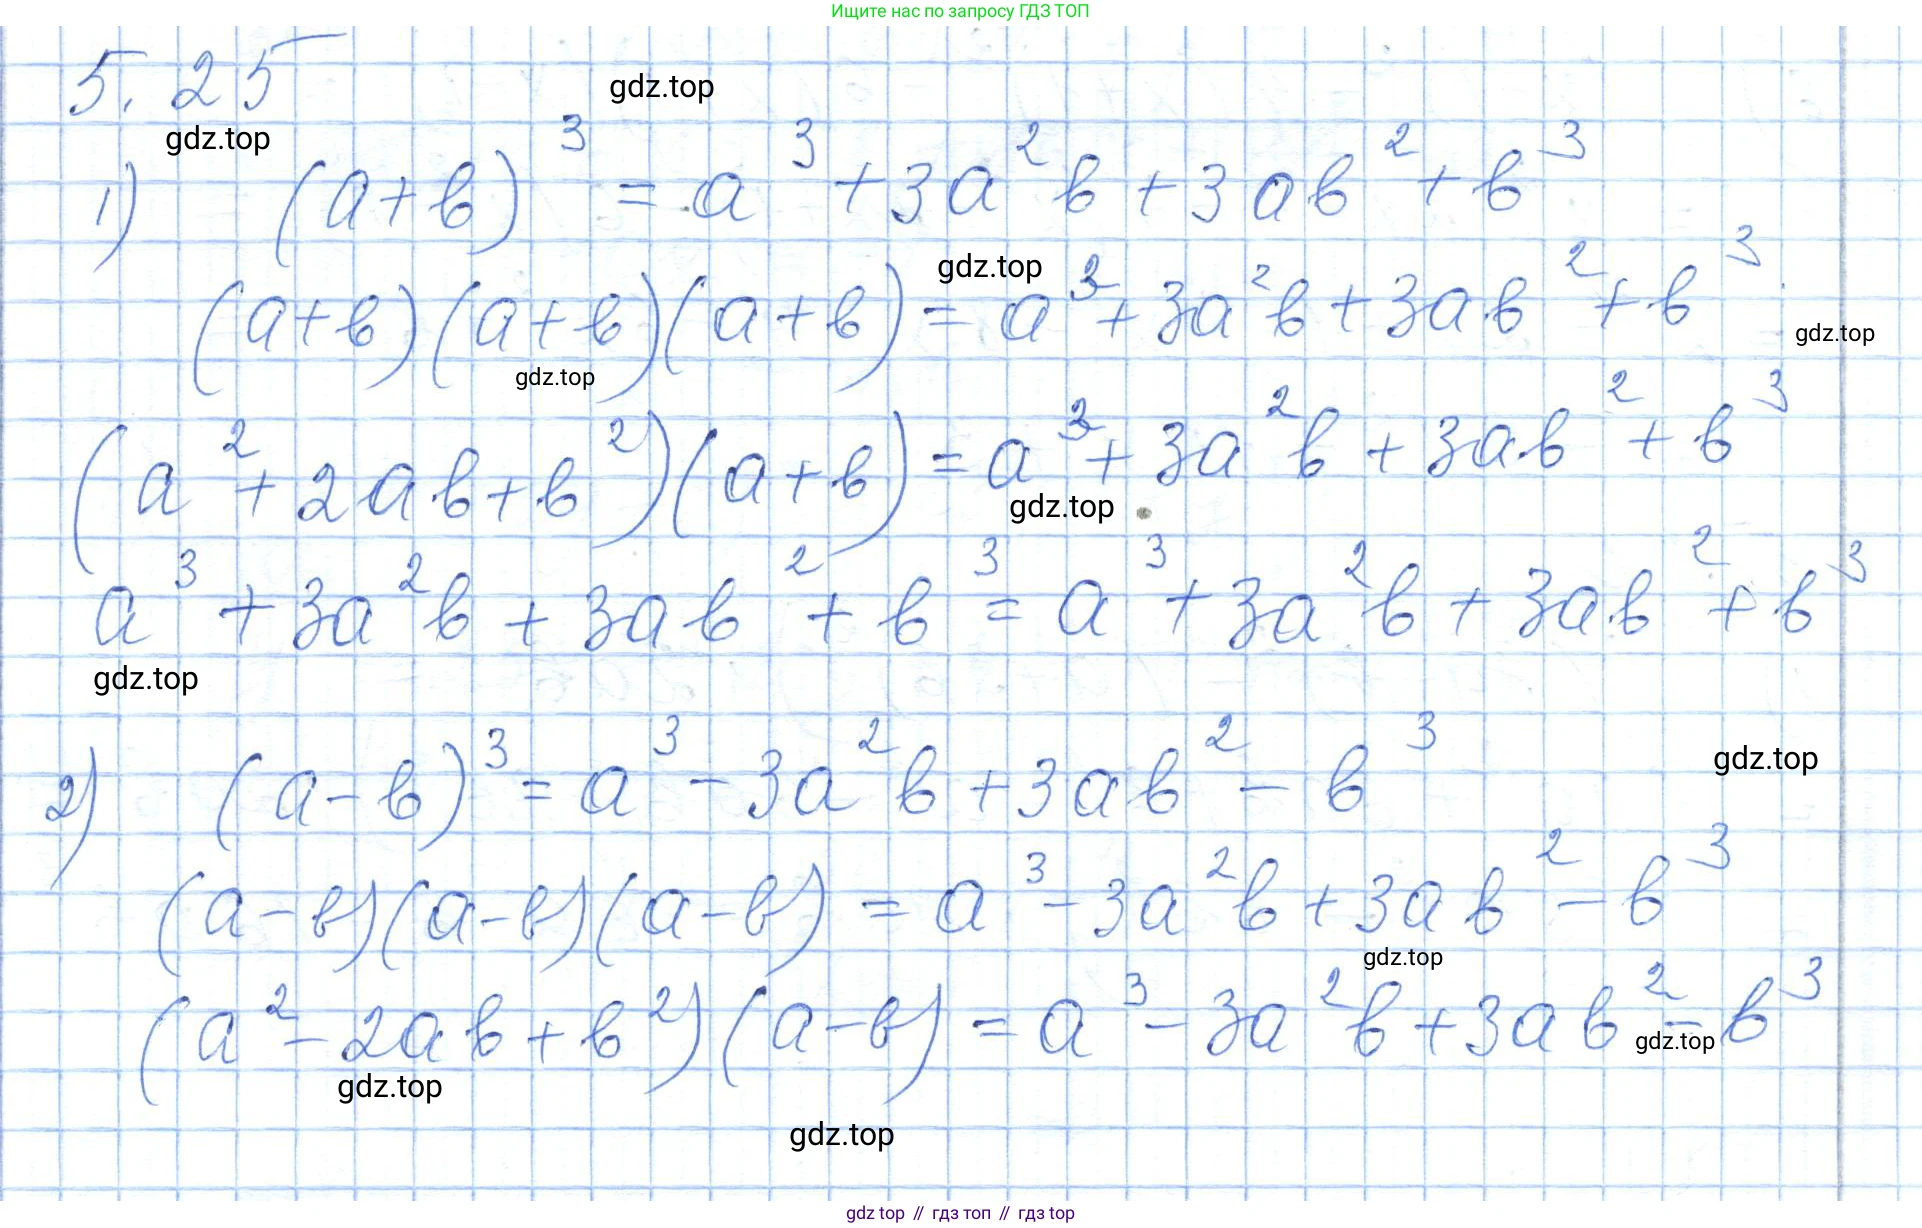 Ищите нас по запросу ГДЗ ТОП
5.25
gdz.top
gdz.top
1) (a+в)³ = a³ + 3a²в + 3aв² + в³
gdz.top
(a+в)(a+в)(a+в) = a³ + 3a²в + 3aв² + в³
gdz.top
gdz.top
(a² + 2aв + в²)(a+в) = a³ + 3a²в + 3aв² + в³
gdz.top
a³ + 3a²в + 3aв² + в³ = a³ + 3a²в + 3aв² + в³
gdz.top
2) (a-в)³ = a³ - 3a²в + 3aв² - в³
gdz.top
(a-в)(a-в)(a-в) = a³ - 3a²в + 3aв² - в³
gdz.top
(a² - 2aв + в²)(a-в) = a³ - 3a²в + 3aв² - в³
gdz.top
gdz.top
gdz.top
gdz top // гдз топ // гдз top